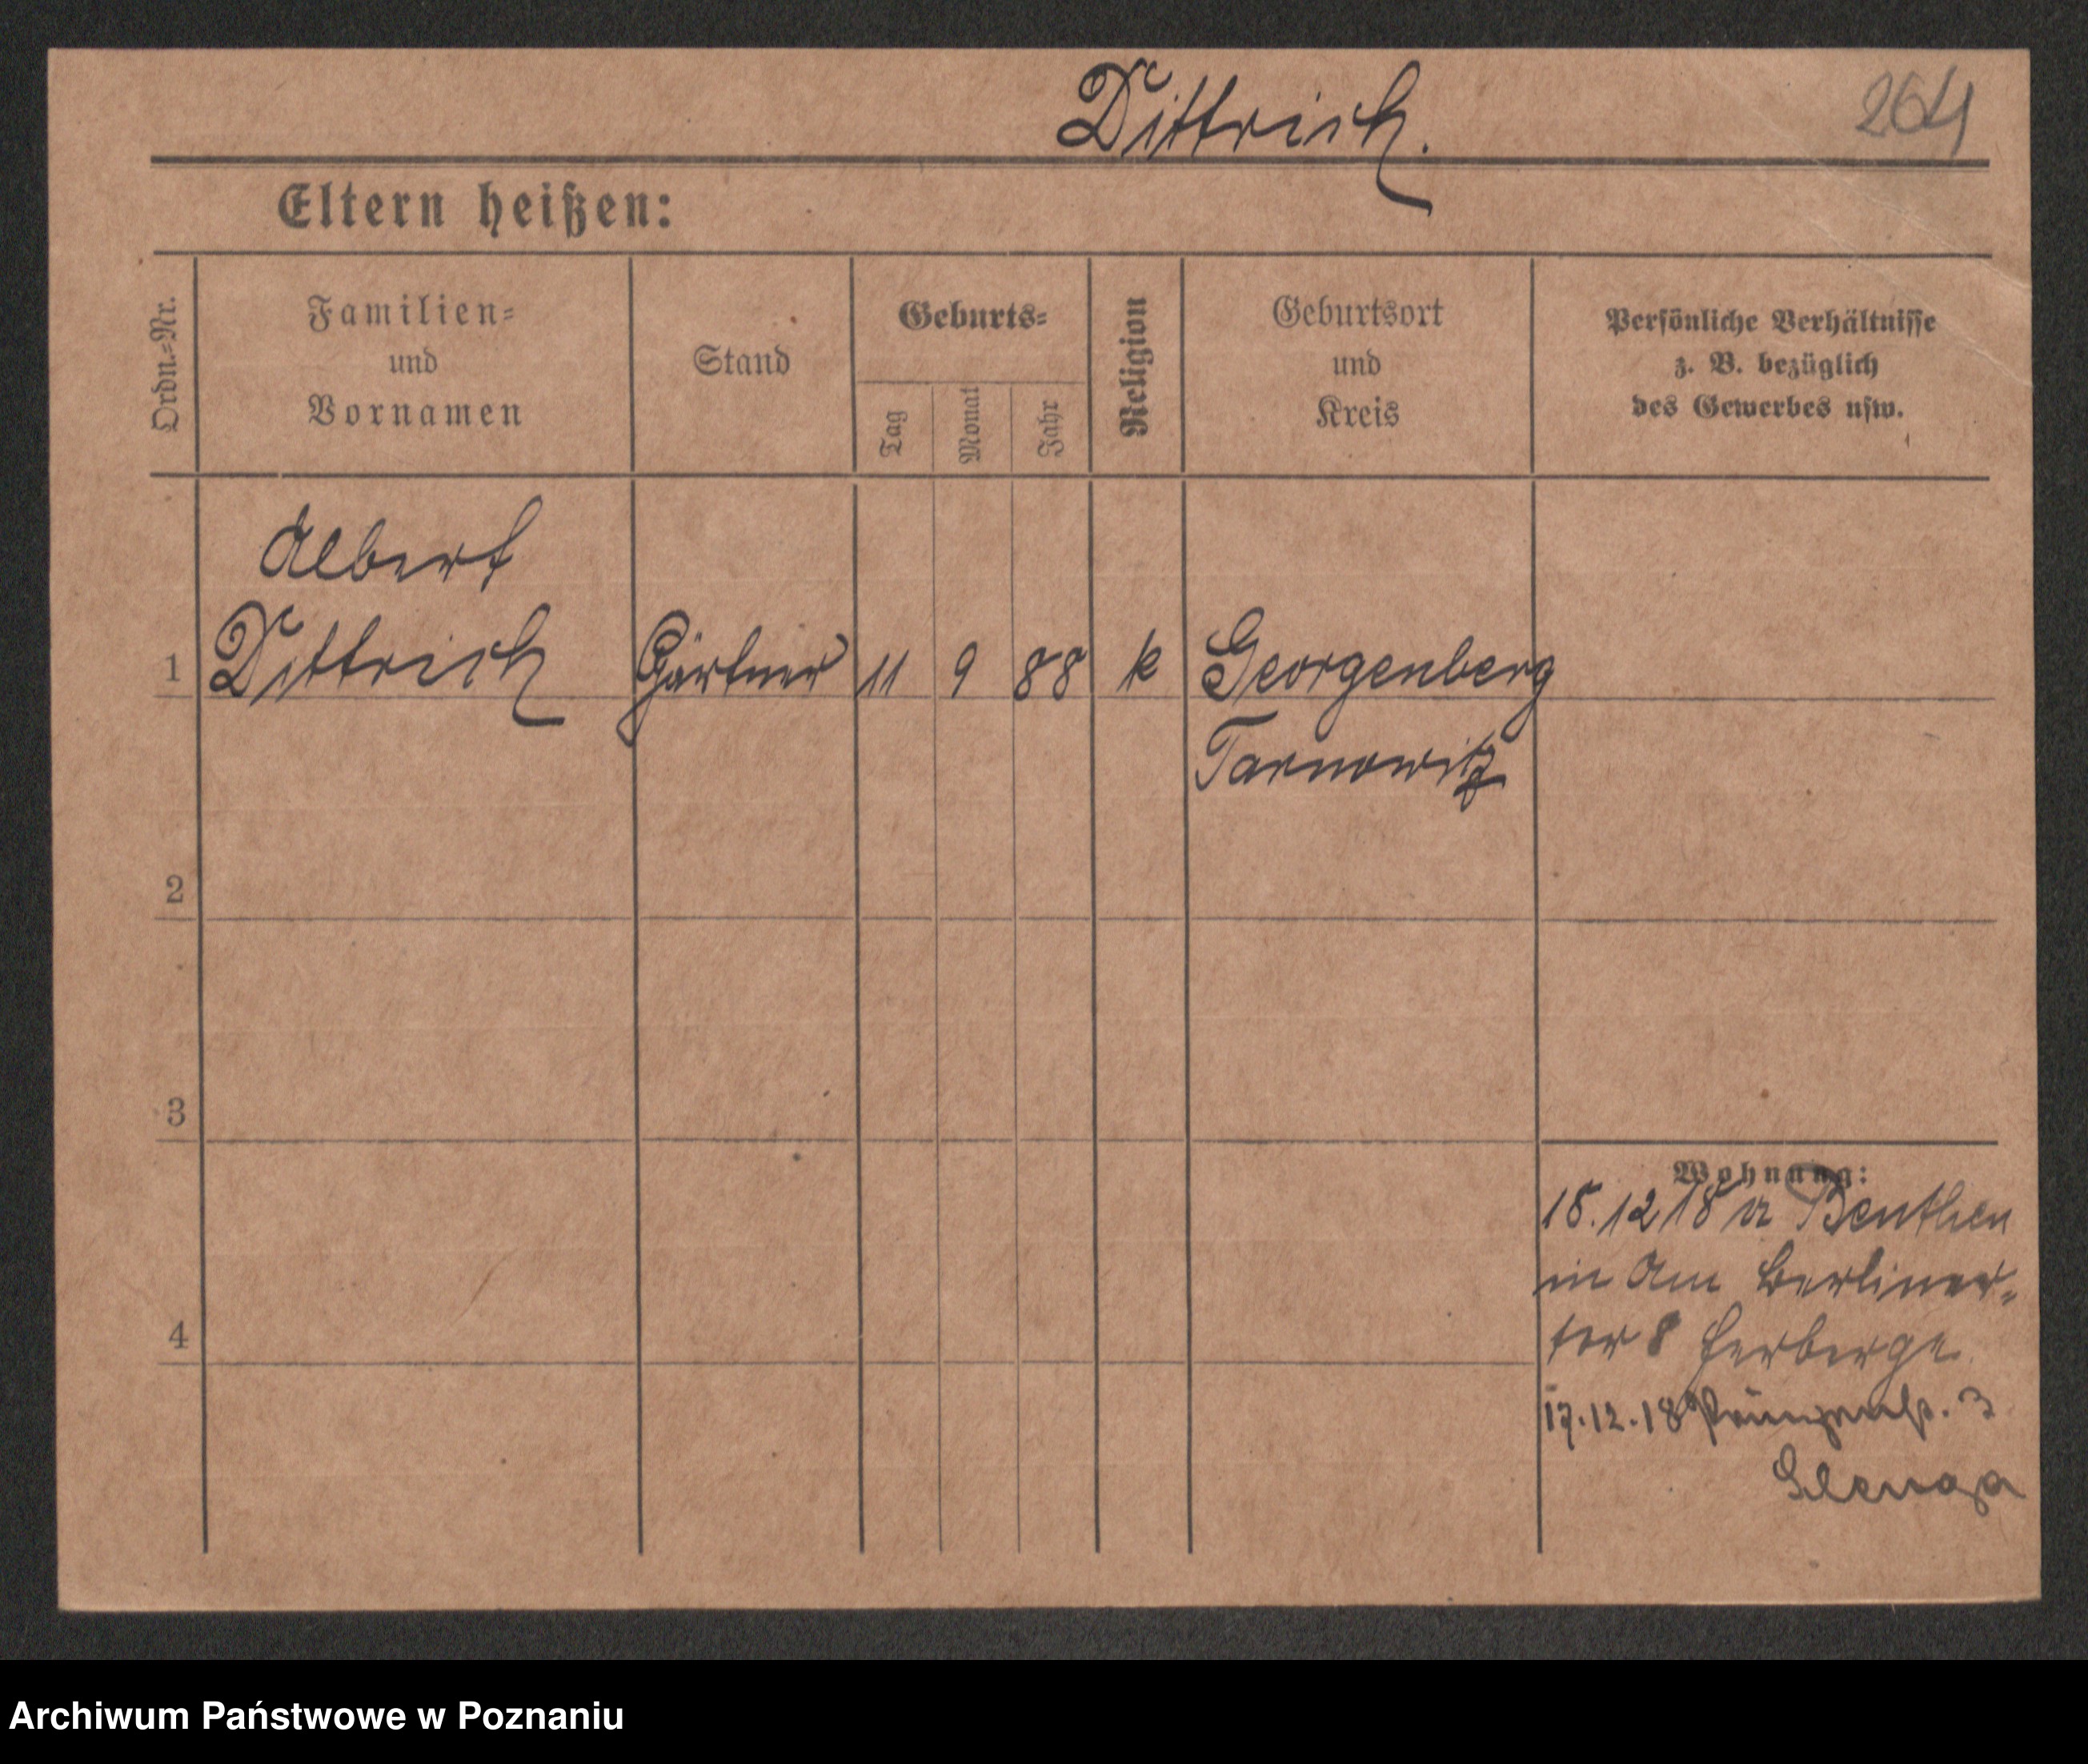 Dittrich.
264
Eltern heißen:
Ordn.-Nr.
Familien-
und
Vornamen
Stand
Geburts-
Tag
Monat
Jahr
Religion
Geburtsort
und
Kreis
Persönliche Verhältnisse
z. B. bezüglich
des Gewerbes usw.
Albert
1 Dittrich Gärtner 11 9 88 k Georgenberg
Tarnowitz
2
3
4
Wohnung:
15.12 18 v Beuthen
in Am Berliner-
tor 8 Herberge
17.12.18 3
Archiwum Państwowe w Poznaniu